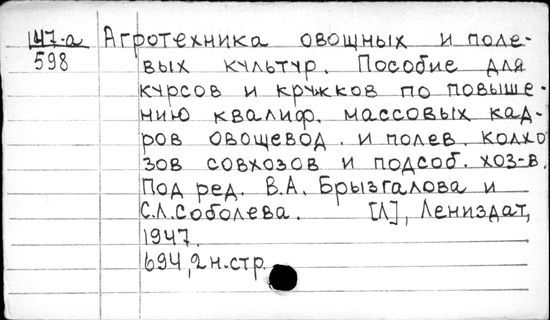 147-а Агротехника овощных и поле-
598 вых культур. Пособие для
курсов и кружков по повыше-
нию квалиф. массовых кад-
ров овощевод. и полев. колхо
зов совхозов и подсоб. хоз-в.
Под ред. В.А. Брызгалова и
С.Л.Соболева. [Л], Лениздат,
1947.
694, 2 н.стр.